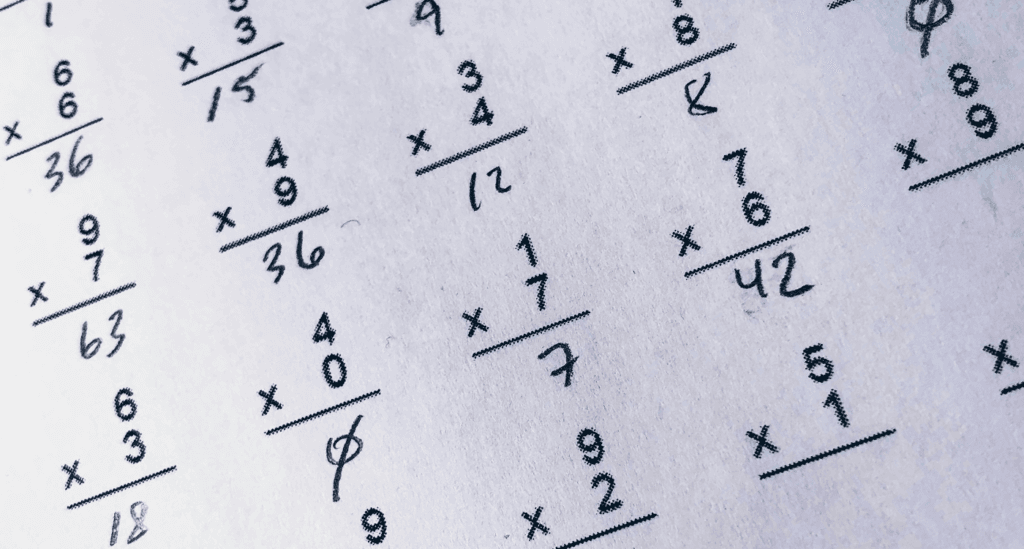 1
6
x 6
36
9
x 7
63
6
x 3
18
x 3
15
4
x 9
36
4
x 0
0
9
9
3
x 4
12
1
x 7
7
9
x 2
x 8
8
7
x 6
42
5
x 1
0
8
x 9
x